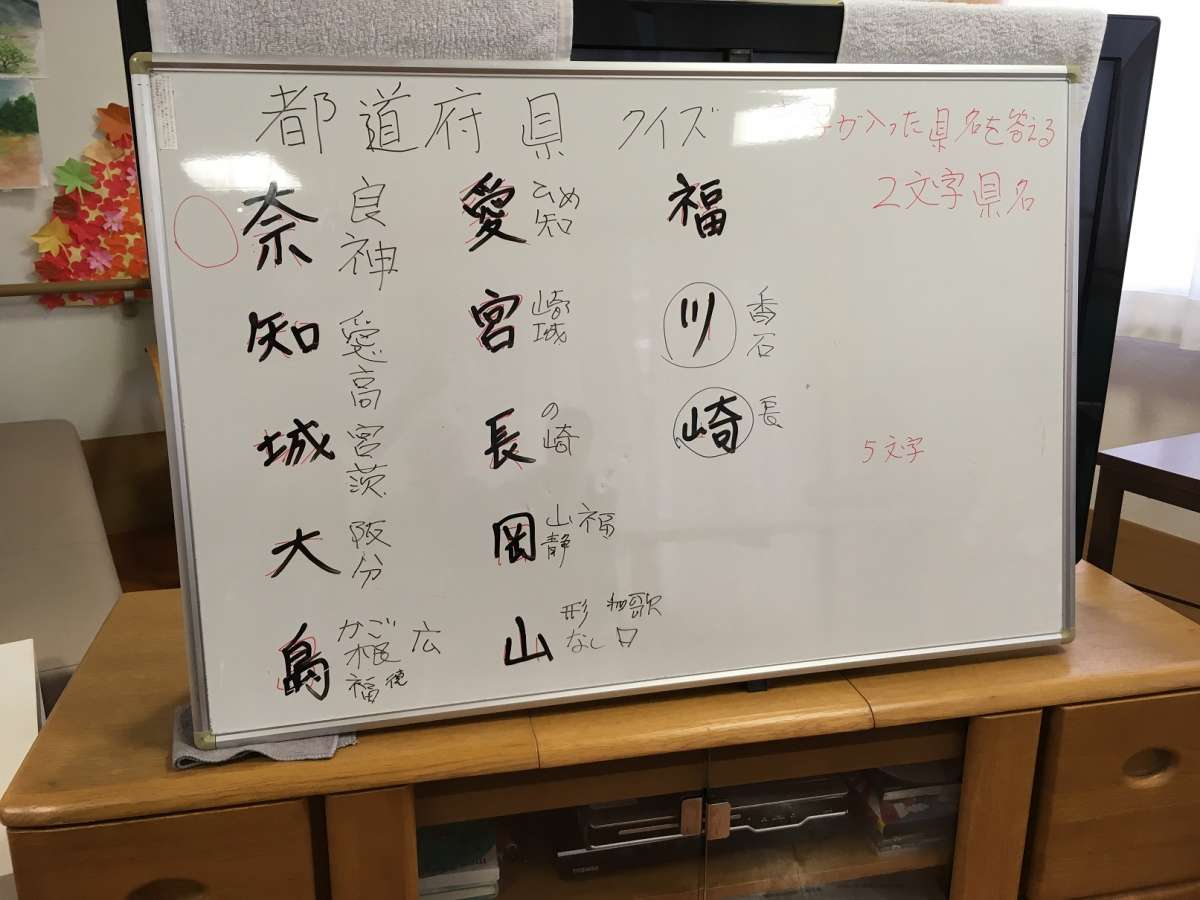 都道府県 クイズ
字が入った県名を答える
2文字県名
奈 良 神
知 愛 高
城 宮 茨
大 阪 分
島 かご 根 広 福 徳
愛 ひめ 知
宮 崎 城
長 の 崎
岡 山 福 静
山 形 和歌 なし 口
福
川 香 石
崎 長
5文字
TOSHIBA